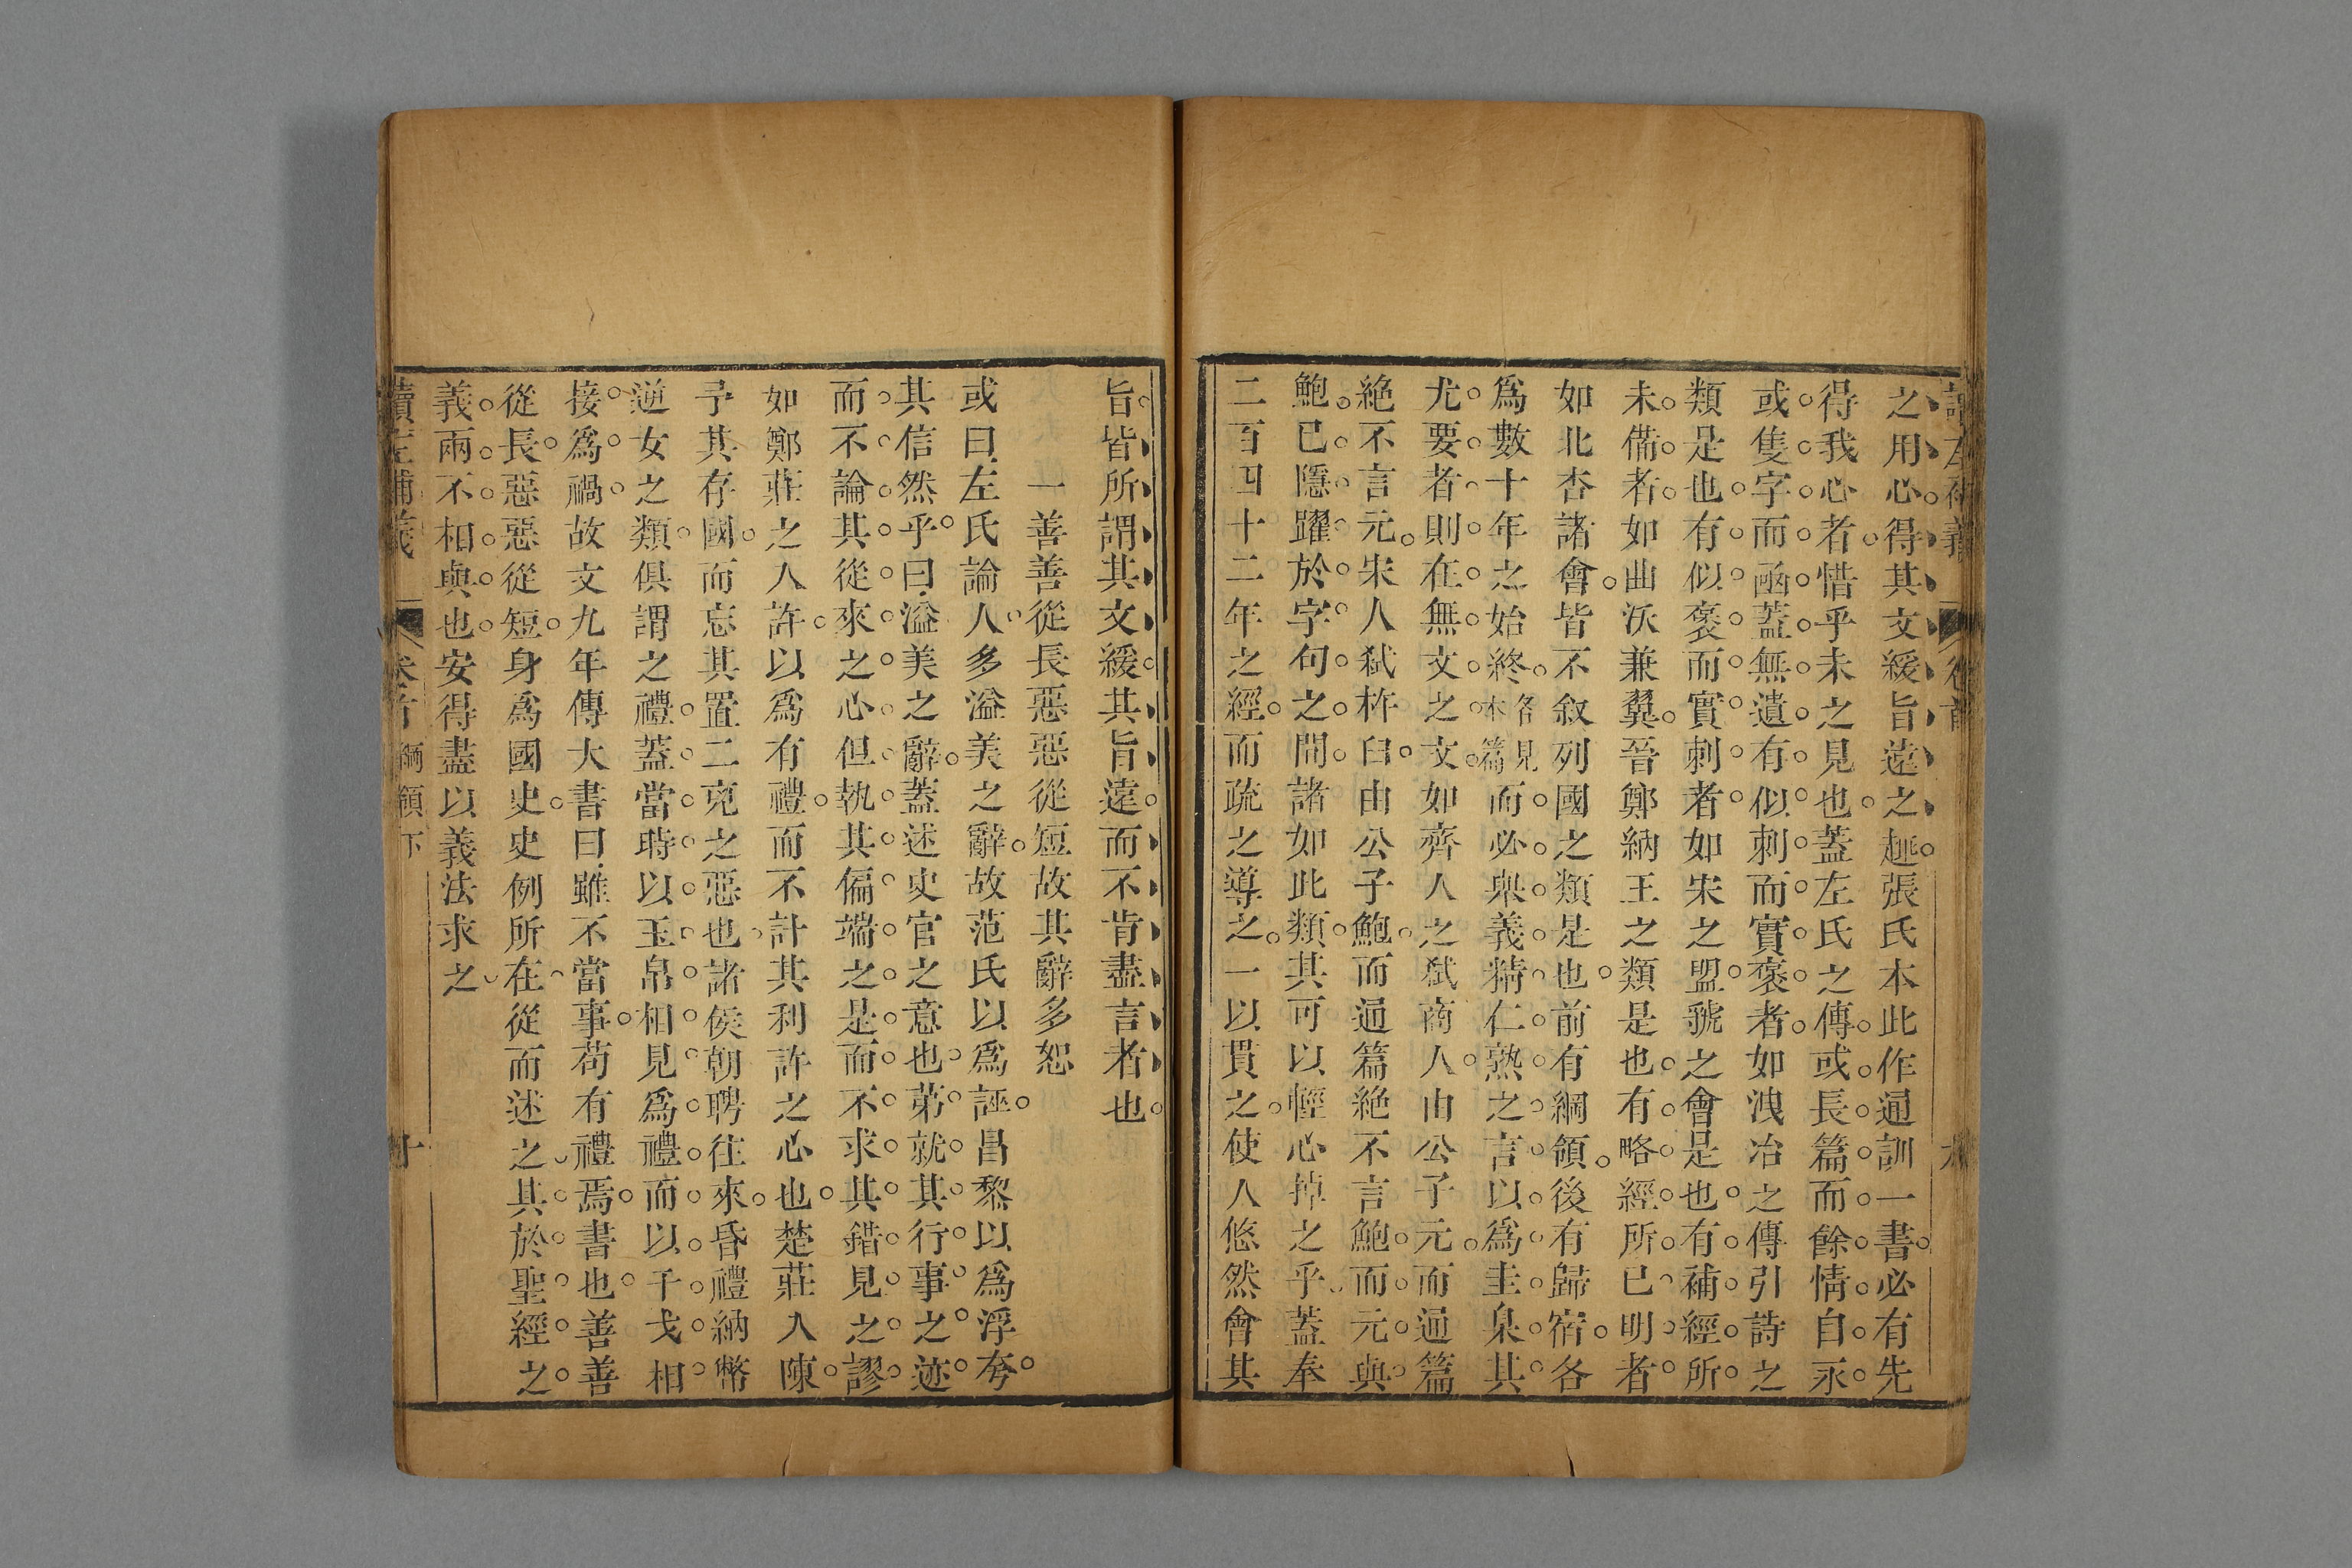 之用心得其文緩旨遠之趣張氏本此作通訓一書必有先
得我心者惜乎未之見也蓋左氏之傳或長篇而餘情自永
或隻字而函蓋無遺有似刺而實褒者如洩冶之傳引詩之
類是也有似褒而實刺者如宋之盟虢之會是也有補經所
未備者如曲沃兼翼晉鄭納王之類是也有略經所已明者
如北杏諸會皆不叙列國之類是也前有綱領後有歸宿各
為數十年之始終各見本篇而必與義精仁熟之言以為圭臬其
尤要者則在無文之文如齊人之弑商人由公子元而通篇
絕不言元宋人弑杵臼由公子鮑而通篇絕不言鮑而元與
鮑已隱躍於字句之間諸如此類其可以輕心掉之乎蓋奉
二百四十二年之經而疏之導之一以貫之使人悠然會其
旨皆所謂其文緩其旨遠而不肯盡言者也
一善善從長惡惡從短故其辭多恕
或曰左氏論人多溢美之辭故范氏以為誣昌黎以為浮夸
其信然乎曰溢美之辭蓋述史官之意也第就其行事之迹
而不論其從來之心但執其偏端之是而不求其錯見之謬
如鄭莊之入許以為有禮而不計其利許之心也楚莊入陳
予其存國而忘其置二兇之惡也諸侯朝聘往來昏禮納幣
逆女之類俱謂之禮蓋當時以玉帛相見為禮而以干戈相
接為禍故文九年傳大書曰雖不當事苟有禮焉書也善善
從長惡惡從短身為國史史例所在從而述之其於聖經之
義兩不相與也安得盡以義法求之
讀左補義 卷首 綱領下 十